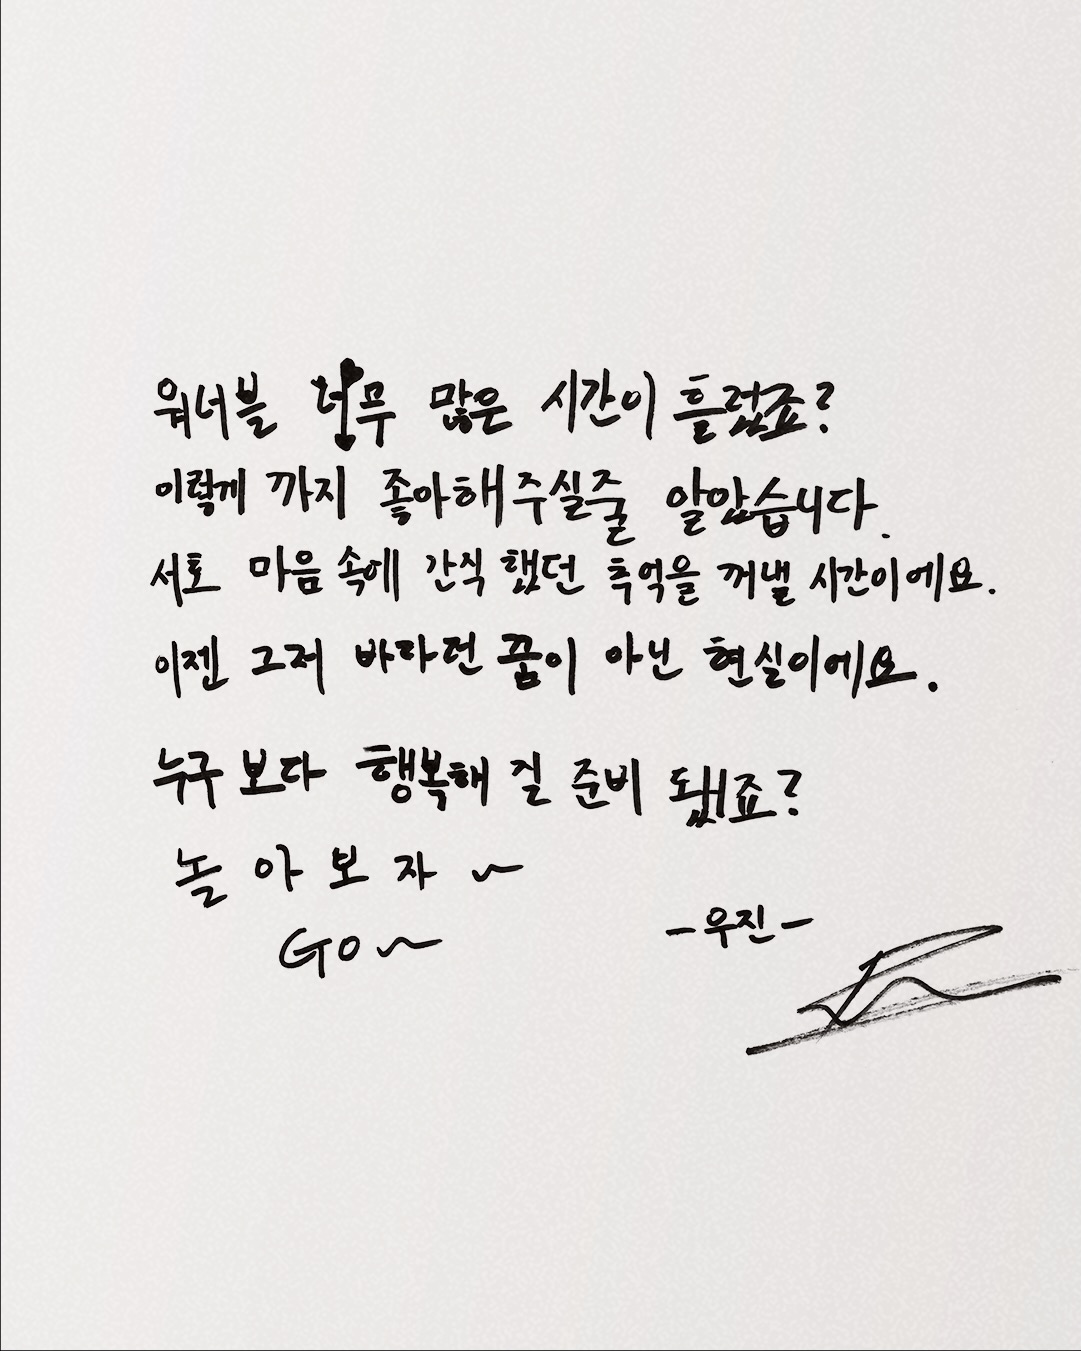 워너블 너무 많은 시간이 흘렀죠?
이렇게 까지 좋아해주실줄 알았습니다.
서로 마음 속에 간직 했던 추억을 꺼낼 시간이에요.
이젠 그저 바라던 꿈이 아닌 현실이에요.
누구 보다 행복해 질 준비 됐죠?
놀 아 보 자 ~
GO~
-우진-